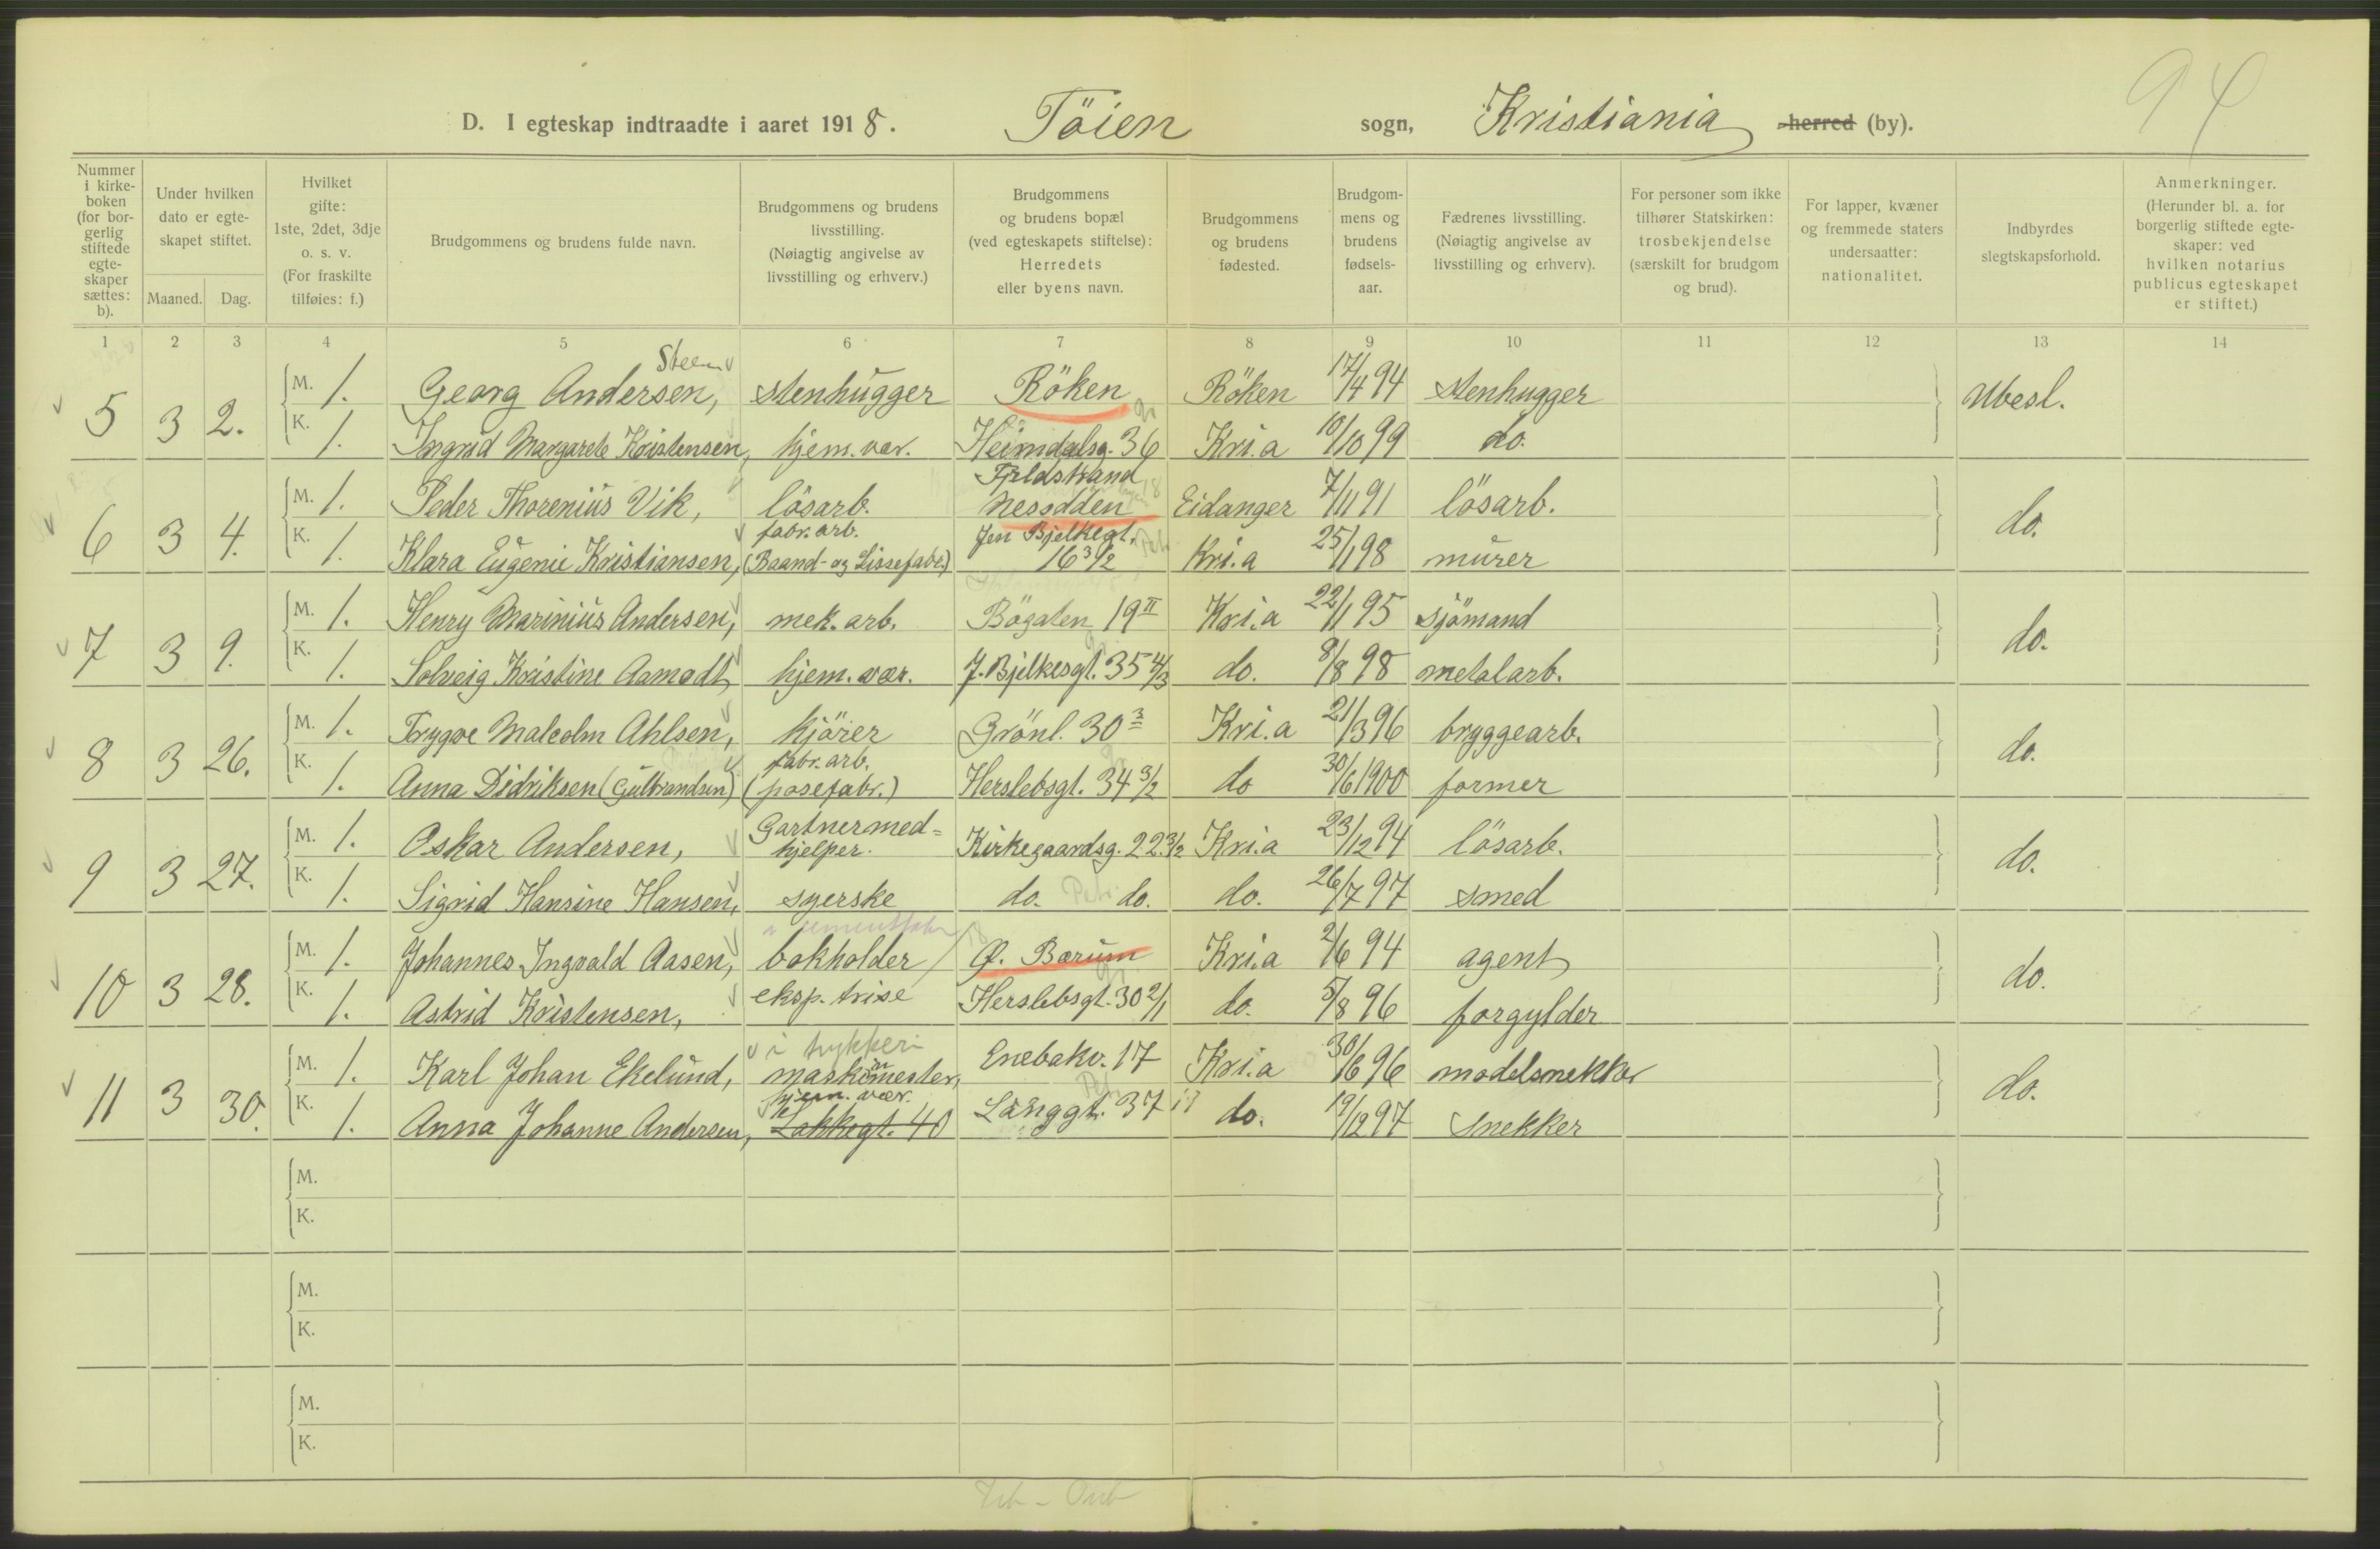 94
D. I egteskap indtraadte i aaret 1918. Töien sogn, Kristiania herred (by).
Nummer i kirke-boken (for bor-gerlig stiftede egte-skaper sættes: b).
Under hvilken dato er egte-skapet stiftet.
Maaned. Dag.
Hvilket gifte: 1ste, 2det, 3dje o. s. v. (For fraskilte tilføies: f.)
Brudgommens og brudens fulde navn.
Brudgommens og brudens livsstilling. (Nøiagtig angivelse av livsstilling og erhverv.)
Brudgommens og brudens bopæl (ved egteskapets stiftelse): Herredets eller byens navn.
Brudgommens og brudens fødested.
Brudgom-mens og brudens fødsels-aar.
Fædrenes livsstilling. (Nøiagtig angivelse av livsstilling og erhverv).
For personer som ikke tilhører Statskirken: trosbekjendelse (særskilt for brudgom og brud).
For lapper, kvæner og fremmede staters undersaatter: nationalitet.
Indbyrdes slegtskapsforhold.
Anmerkninger. (Herunder bl. a. for borgerlig stiftede egte-skaper: ved hvilken notarius publicus egteskapet er stiftet.)
1 2 3 4 5 6 7 8 9 10 11 12 13 14
Steen
5 3 2. M. 1. Georg Andersen, stenhugger Röken Röken 17/4 94 stenhugger Ubesl.
K. 1. Ingrid Margarete Kristensen, hjem. vær. Heimdalsg. 36 Kri.a 10/10 99 do.
Fjeldstrand
6 3 4. M. 1. Peder Thorenius Vik, lösarb. Nesodden Eidanger 7/11 91 lösarb. do.
fabr. arb. Jen Bjelkegt.
K. 1. Klara Eugenie Kristiansen, (Baand- og Lissefabr.) 16 3/2 Kri.a 25/1 98 murer
7 3 9. M. 1. Henry Marinius Andersen, mek. arb. Bögaten 19 II Kri.a 22/1 95 sjömand do.
K. 1. Solveig Kristine Aamodt, hjem. vær. J. Bjelkesgt. 35 4/3 do. 8/8 98 metalarb.
8 3 26. M. 1. Trygve Malcolm Ahlsen, kjörer Grönl. 30 3 Kri.a 21/3 96 bryggearb. do.
fabr. arb.
K. 1. Anna Didriksen (Gulbrandsen) (posefabr.) Herslebsgt. 34 3/2 do 30/6 1900 former
Gartnermed=
9 3 27. M. 1. Oskar Andersen, hjelper. Kirkegaardsg. 22 3/2 Kri.a 23/12 94 lösarb. do.
K. 1. Sigrid Hansine Hansen, syerske do. Petri do. do. 26/7 97 smed
10 3 28. M. 1. Johannes Ingvald Aasen, bokholder Ø. Bærum Kri.a 2/6 94 agent do.
K. 1. Astrid Kristensen, eksp. trise Herslebsgt. 30 2/1 do. 5/8 96 forgylder
i trykkeri
11 3 30. M. 1. Karl Johan Ekelund, maskinmester, Enebakv. 17 Kri.a 30/6 96 modelsnekker do.
hjem. vær.
K. 1. Anna Johanne Andersen, Lakkegt. 40 Langgt. 37 do. 19/12 97 Snekker
M.
K.
M.
K.
M.
K.